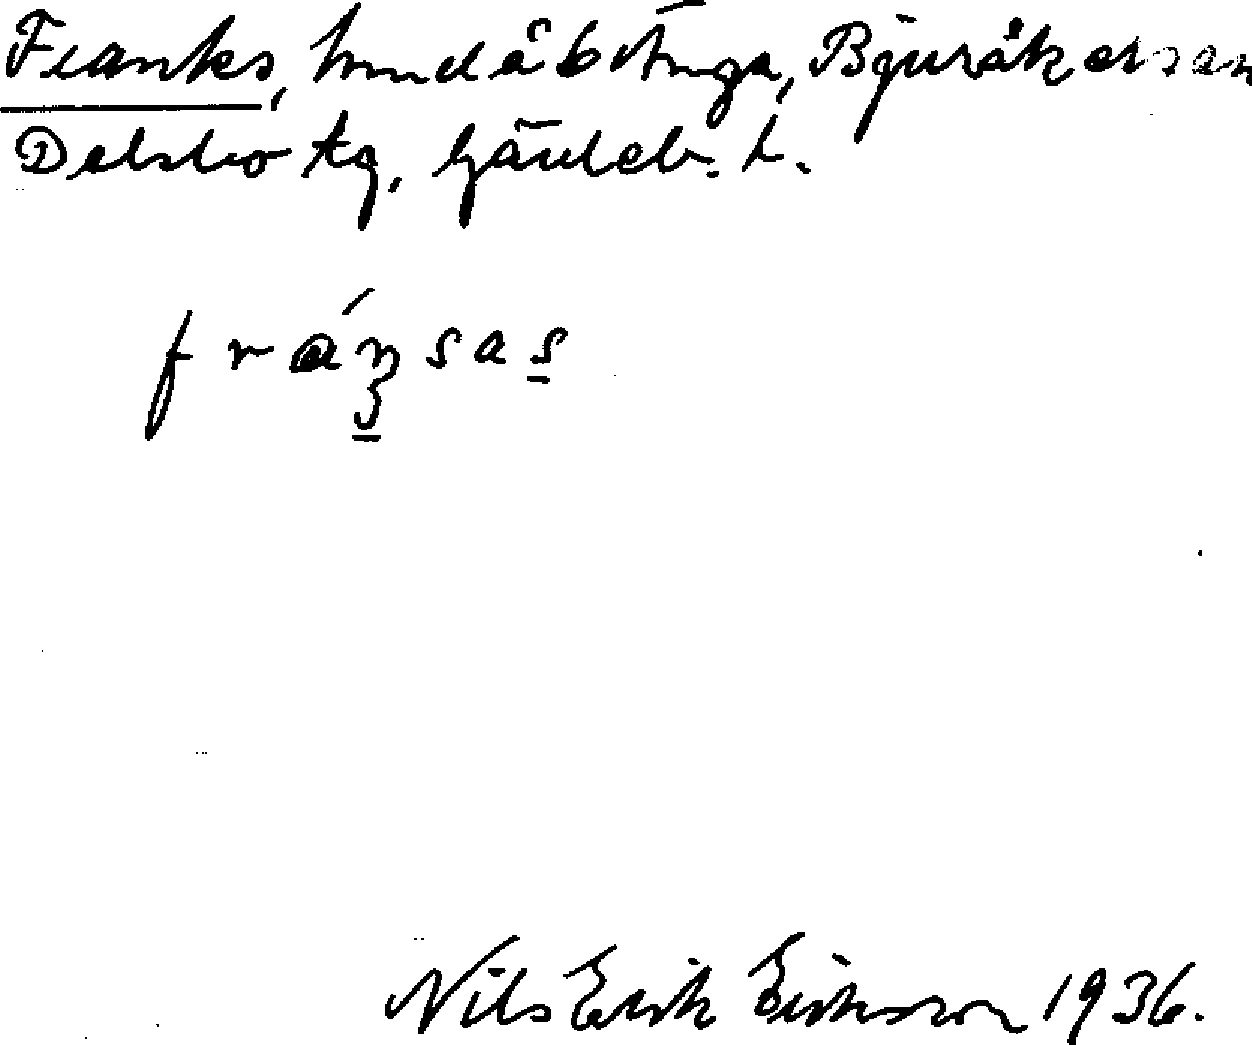 Franks, hmd å Bitnga, Bjuråkers sn
Delsbo tg, Gävleb. L.
fráŋsas
Nils Erik Eriksson 1936.